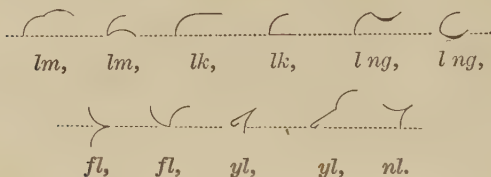 lm, lm, lk, lk, l ng, l ng,
fl, fl, yl, yl, nl.